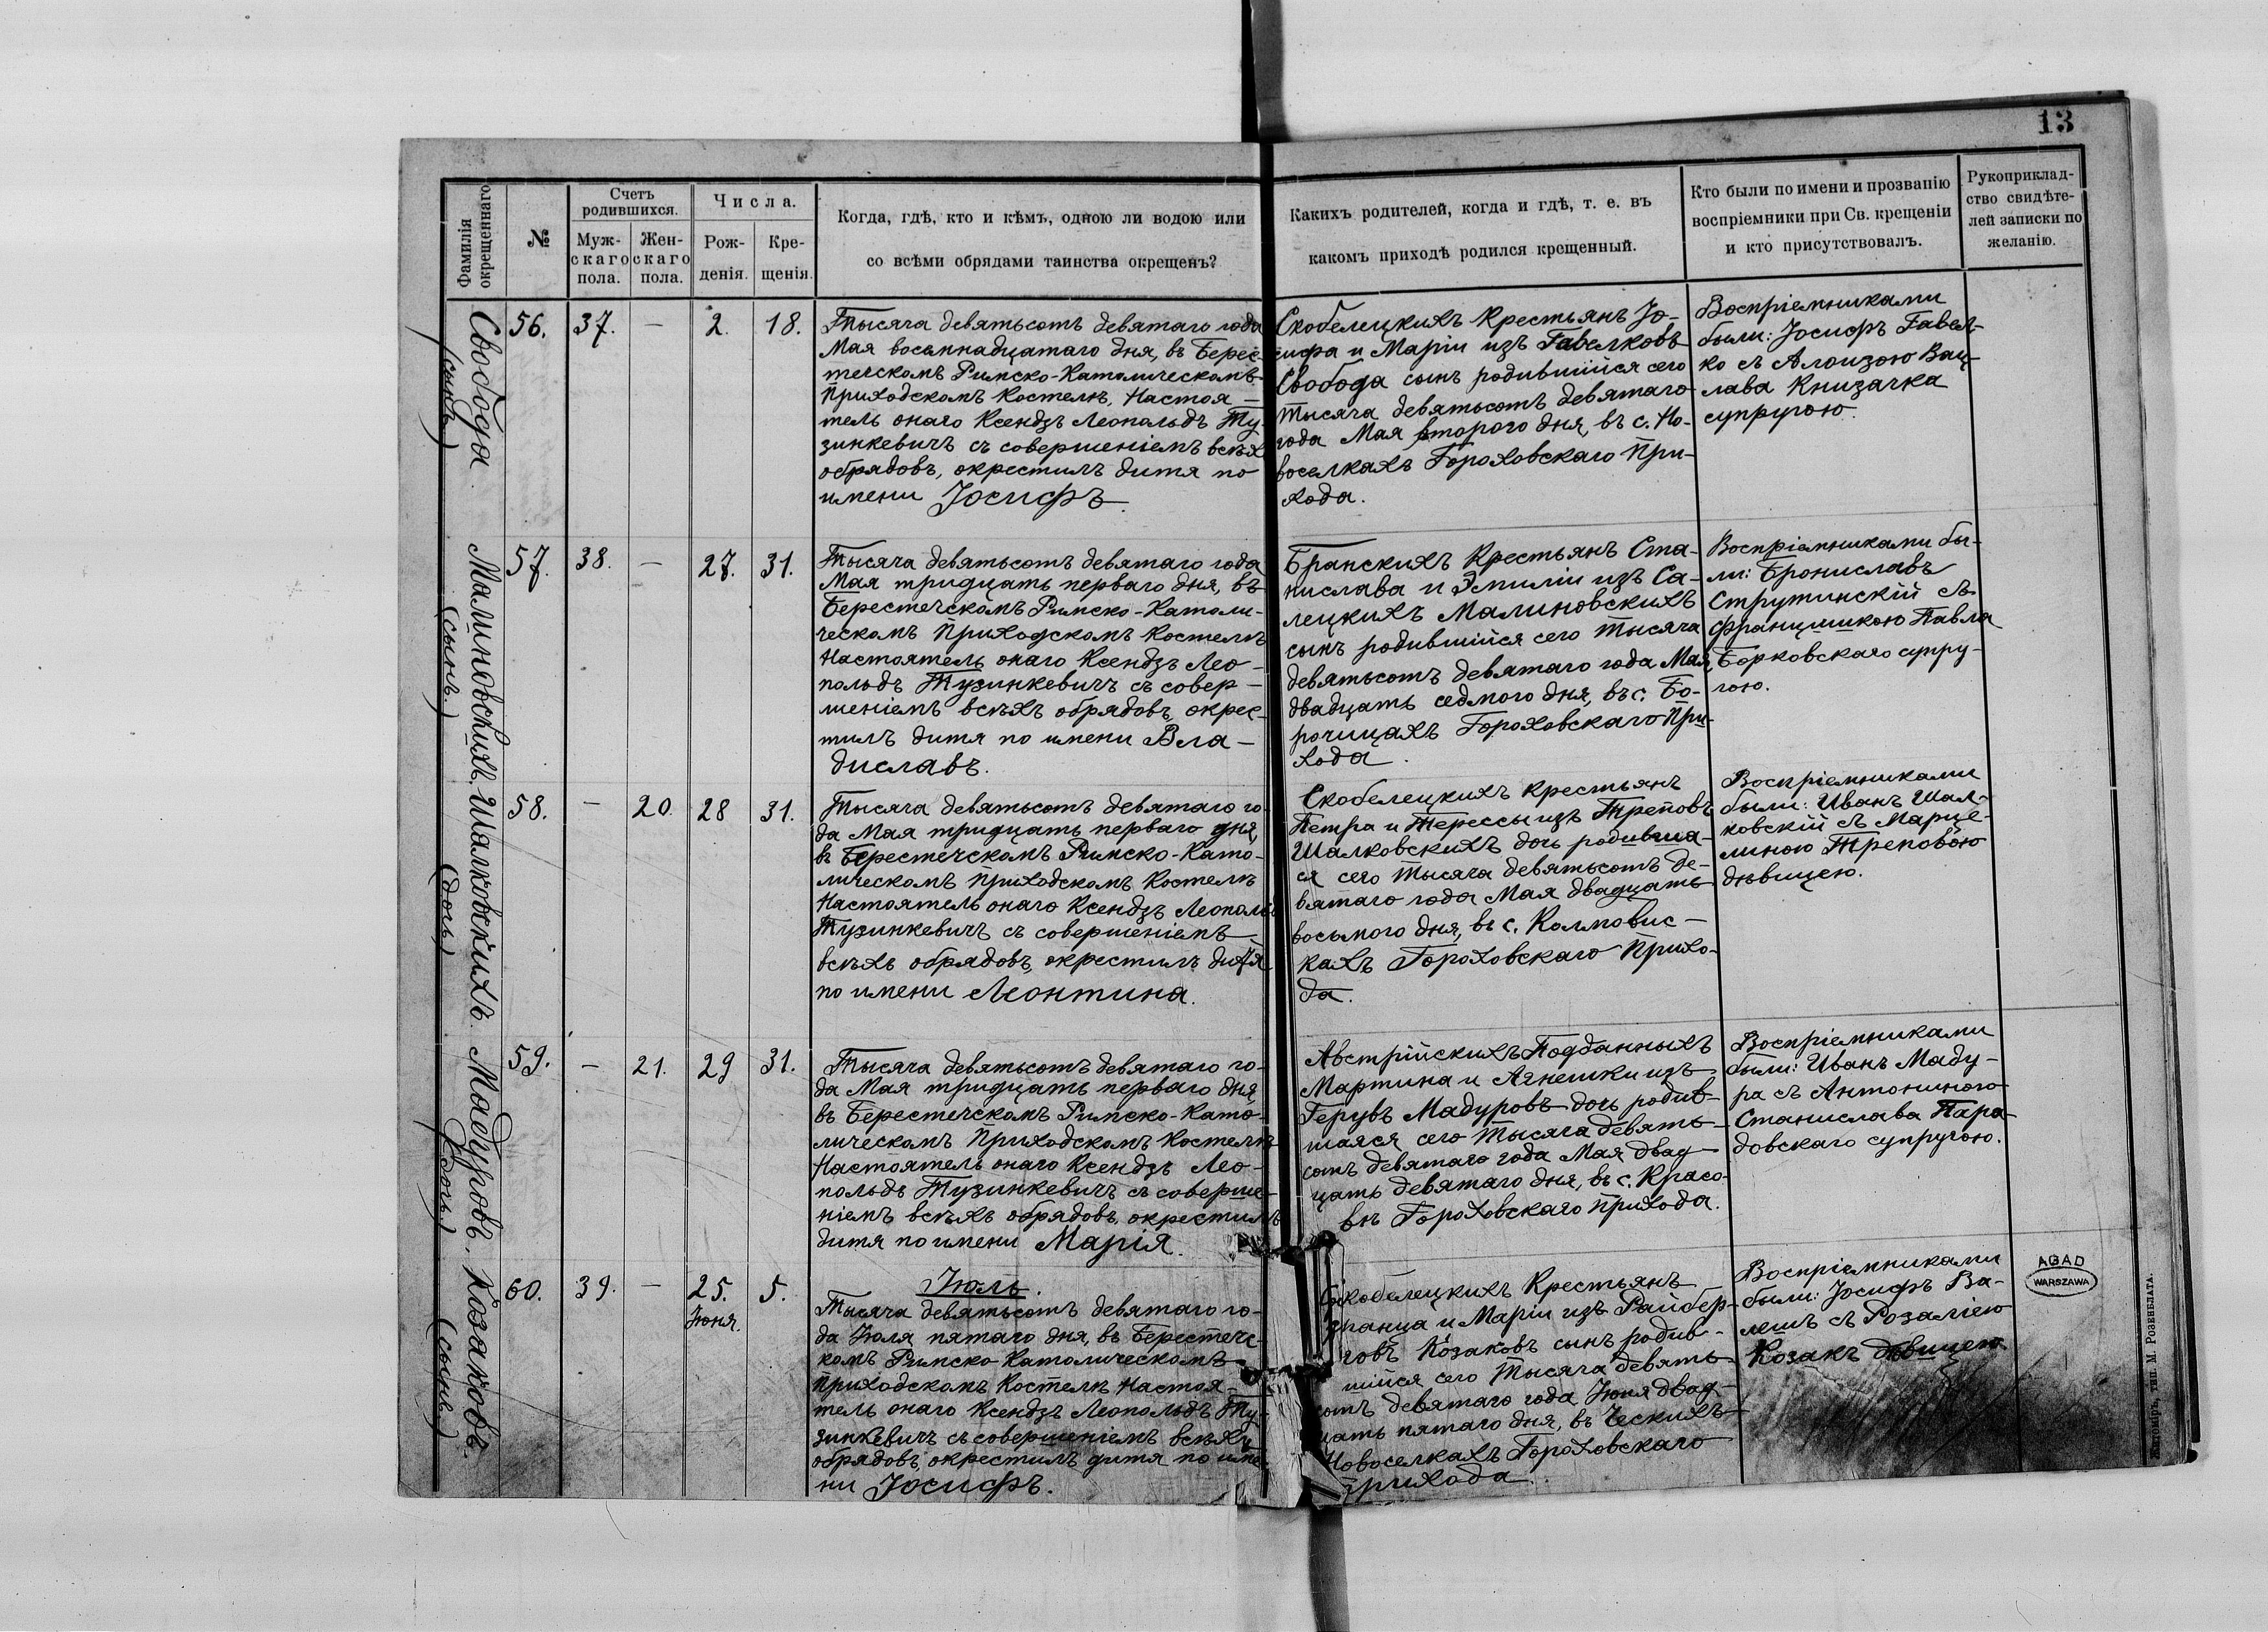 13
Фамилія окрещеннаго
№
Счетъ родившихся.
Мужскаго пола.
Женскаго пола.
Числа.
Рожденія.
Крещенія.
Когда, гдѣ, кто и кѣмъ, одною ли водою или
со всѣми обрядами таинства окрещенъ?
Какихъ родителей, когда и гдѣ, т. е. въ
какомъ приходѣ родился крещенный.
Кто были по имени и прозванію
воспріемники при Св. крещеніи
и кто присутствовалъ.
Рукоприклад-
ство свидѣте-
лей записки по
желанію.
Свобода.
(сынъ)
56.
37.
—
2.
18.
Тысяча девятьсотъ девятаго года
Мая восемнадцатаго дня, въ Берес-
течскомъ Римско-Католическомъ
Приходскомъ Костелѣ, Настоя-
тель онаго Ксендзъ Леопольдъ Ту-
зинкевичъ съ совершеніемъ всѣхъ
обрядовъ, окрестилъ дитя по
имени Іосифъ.
Скобелецкихъ Крестьянъ Іо-
сифа и Маріи изъ Гавелковъ
Свобода сынъ родившійся сего
тысяча девятьсотъ девятаго
года Мая второго дня, въ с. Но-
воселкахъ Гороховскаго При-
хода.
Воспріемниками
были: Іосифъ Гавел-
ко съ Алоизою Вац-
лава Книзачка
супругою.
Малиновскихъ.
(сынъ.)
57.
38.
—
27.
31.
Тысяча девятьсотъ девятаго года
Мая тридцать перваго дня, въ
Берестечскомъ Римско-Католи-
ческомъ Приходскомъ Костелѣ
Настоятель онаго Ксендзъ Лео-
польдъ Тузинкевичъ съ совер-
шеніемъ всѣхъ обрядовъ, окрес-
тилъ дитя по имени Вла-
диславъ.
Бранскихъ Крестьянъ Ста-
нислава и Эмиліи изъ Са-
лецкихъ Малиновскихъ
сынъ родившійся сего тысяча
девятьсотъ девятаго года Мая
двадцать седмого дня, въ с. Бо-
рочицахъ Гороховскаго При-
хода.
Воспріемниками бы-
ли: Брониславъ
Струтинскій съ
Францишкою Павла
Борковскаго супру-
гою.
Шалковскихъ.
(дочь)
58.
—
20
28
31.
Тысяча девятьсотъ девятаго го-
да Мая тридцать перваго дня,
въ Берестечскомъ Римско-Като-
лическомъ приходскомъ Костелѣ
Настоятель онаго Ксендзъ Леопольдъ
Тузинкевичъ съ совершеніемъ
всѣхъ обрядовъ, окрестилъ дитя
по имени Леонтина.
Скобелецкихъ крестьянъ
Петра и Терессы изъ Треповъ
Шалковскихъ дочь родивша-
ся сего тысяча девятьсотъ де-
вятаго года Мая двадцать
восьмого дня, въ с. Колмовис-
кахъ Гороховскаго Прихо-
да.
Воспріемниками
были: Иванъ Шал-
ковскій съ Марце-
линою Треповою
дѣвицею.
Мадуровъ.
(дочь)
59.
—
21.
29
31.
Тысяча девятьсотъ девятаго го-
да Мая тридцать перваго дня
въ Берестечскомъ Римско-Като-
лическомъ Приходскомъ Костелѣ
Настоятель онаго Ксендзъ Лео-
польдъ Тузинкевичъ съ соверше-
ніемъ всѣхъ обрядовъ, окрестилъ
дитя по имени Марія.
Австрійскихъ Подданныхъ
Мартина и Агнешки изъ
Герувъ Мадуровъ дочь родив-
шаяся сего тысяча девять-
сотъ девятаго года Мая двад-
цать девятаго дня, въ с. Красо-
вѣ Гороховскаго прихода.
Воспріемниками
были: Иванъ Маду-
ра съ Антониною
Станислава Пара-
довскаго супругою.
Козаковъ.
(сынъ.)
60.
39.
—
25.
Іюня.
5.
Іюль.
Тысяча девятьсотъ девятаго го-
да Іюля пятаго дня, въ Берестечс-
комъ Римско Католическомъ
приходскомъ Костелѣ Настоя-
тель онаго Ксендзъ Леопольдъ Ту-
зинкевичъ съ совершеніемъ всѣхъ
обрядовъ, окрестилъ дитя по име-
ни Іосифъ.
Скобелецкихъ Крестьянъ
Франца и Маріи изъ Райбер-
говъ Козаковъ сынъ родив-
шійся сего тысяча девять-
сотъ девятаго года Іюня двад-
цать пятаго дня, въ Ческихъ
Новоселкахъ Гороховскаго
прихода.
Воспріемниками
были: Іосифъ Ва-
лешъ съ Розаліею
Козакъ дѣвицею
AGAD
WARSZAWA
Житоміръ, тип. М. Розенблата.